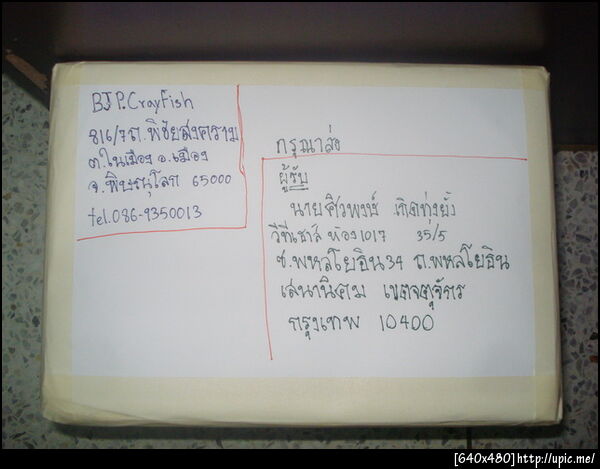 BJP.Crayfish
816/7 ถ.พิชัยสงคราม
ต.ในเมือง อ.เมือง
จ.พิษณุโลก 65000
tel.086-9350013
กรุณาส่ง
ผู้รับ
นายศิวพงษ์ เกิดทุ่งยั้ง
วีทีเฮาส์ ห้อง 1017 35/5
ซ.พหลโยธิน 34 ถ.พหลโยธิน
เสนานิคม เขตจตุจักร
กรุงเทพ 10400
[640x480]http://upic.me/